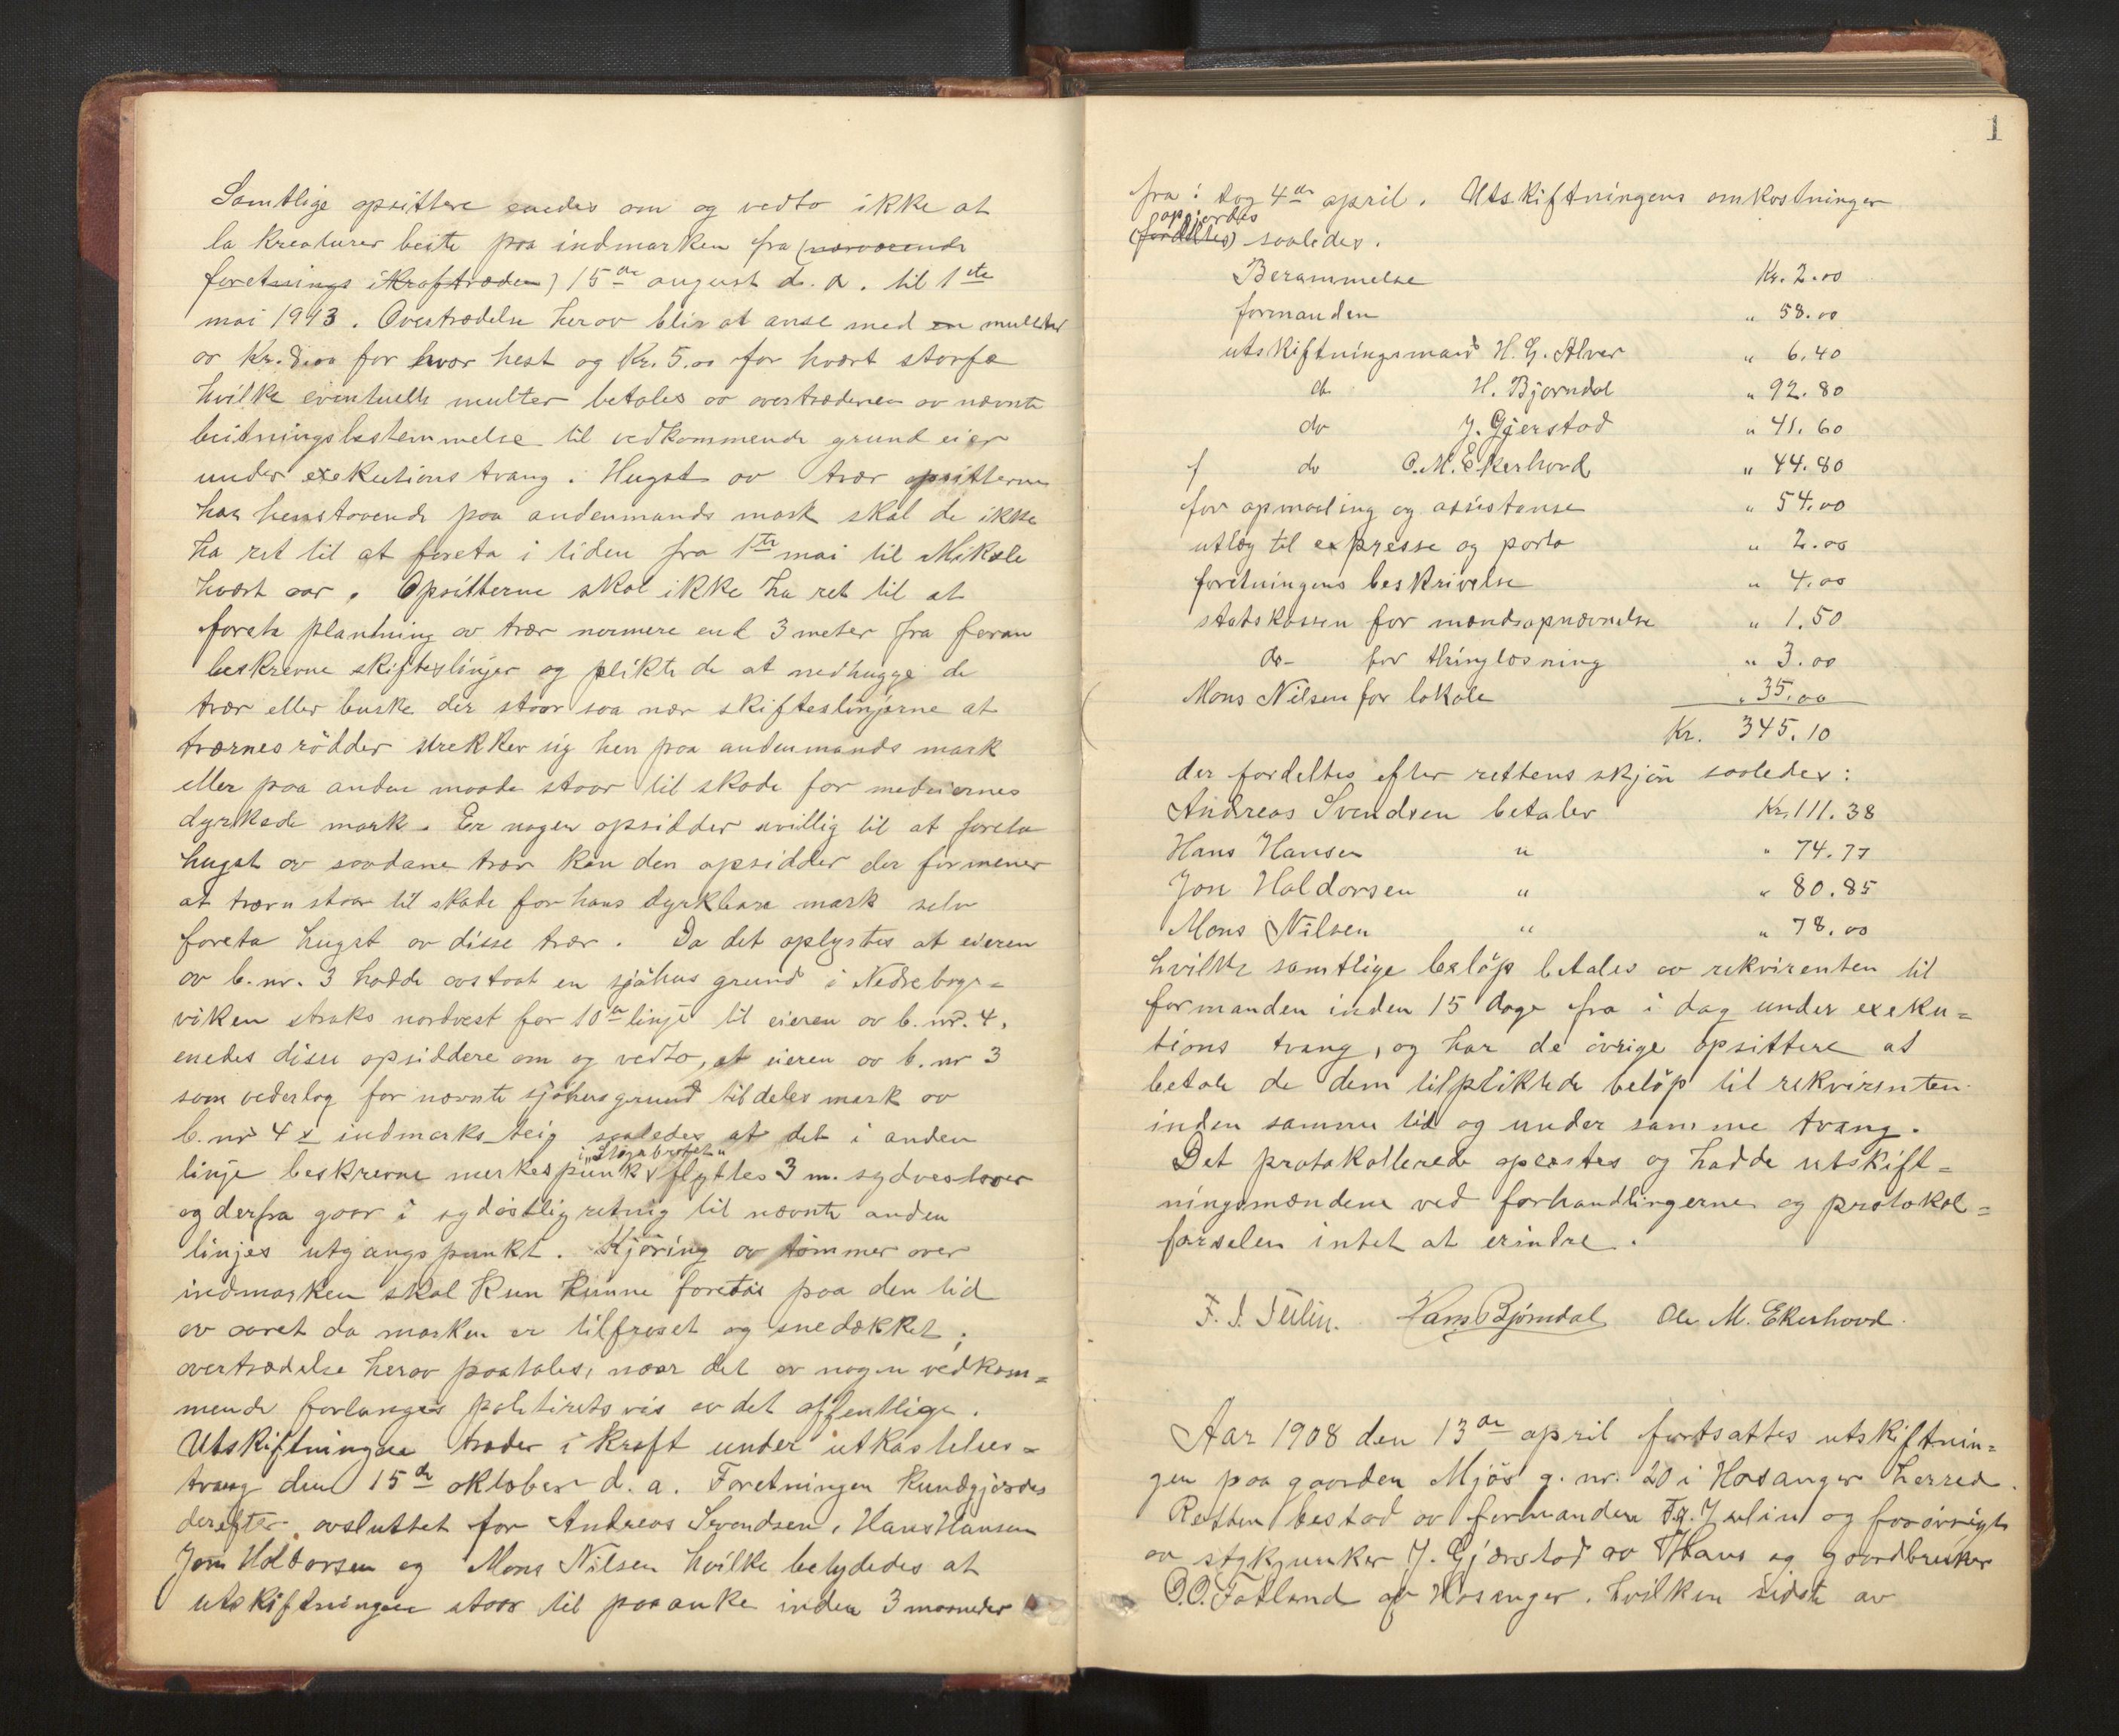 Samtlige opsittere enedes om og vedto ikke at
la kreaturer beite paa indmarken fra (nærværende
foretnings ikrafttræden) 15de august d. a. til 1ste
mai 1913. Overtrædelse herav blir at anse med en mulkter
av Kr. 8.00 for hvær hest og Kr. 5.00 for hvært storfæ
hvilke eventuelle multer betales av overtræderen av nævnte
beitningsbestemmelse til vedkommende grundeier
under exekutions tvang. Hugst av trær opsitterne
har henstaaende paa andenmands mark skal de ikke
ha ret til at foreta i tiden fra 1ste mai til Mikæle
hvært aar. Opsitterne skal ikke ha ret til at
foreta plantning av trær nærmere end 3 meter fra foran
beskrevne skifteslinjer og plikte de at nedhugge de
trær eller buske der staar saa nær skifteslinjerne at
trærnes rödder strekker sig hen paa andenmands mark
eller paa anden maade staar til skade for medeiernes
dyrkede mark. Er nogen opsidder uvillig til at foreta
hugst av saadane trær kan den opsidder der formener
at trærn staar til skade for hans dyrkbare mark selv
foreta hugst av disse trær. Da det oplystes at eieren
av b. nr. 3 hadde avstaat en sjöhus grund i Nedrebogs=
viken straks nordvest for 10de linje til eieren av b. nr. 4,
enedes disse opsiddere om og vedto, at eieren av b. nr 3
som vederlag for nævnte sjöhusgrund tildeles mark av
b. nr 4 s indmarks teig saaledes at det i anden
linje beskrevne merkespunkt i "Stigabrotet" flyttes 3 m. sydvestover
og derfra gaar i sydöstlig retnig til nævnte anden
linjes utgangspunkt. Kjöring av tömmer over
indmarken skal kun kunne foretas paa den tid
av aaret da marken er tilfroset og snedækket;
overtrædelse herav paatales, naar det av nogen vedkom=
mende forlanges politiretsvis av det offentlige.
Utskiftningen træder i kraft under utkastelses=
tvang den 15de oktober d. a. Foretningen kundgjordes
derefter avsluttet for Andreas Svendsen, Hans Hansen
Jon Haldorsen og Mons Nilsen hvilke betydedes at
utskiftningen staar til paaanke inden 3 maaneder
1
fra i dag 4de april. Utskiftningens omkostninger
opgjordes
(fordeltes) saaledes.
Berammelse Kr. 2.00
formanden " 58.00
utskiftningsmand H. G. Alver " 6.40
do H. Bjørndal " 92.80
do J. Gjerstad " 41.60
f do O. M. Ekerhovd " 44.80
for opmaaling og assistanse " 54.00
utlæg til expresse og porto " 2.00
foretningens beskrivelse " 4.00
statskassen for mændsopnævnelse " 1.50
do- for thinglæsning " 3.00
Mons Nilsen for lokale " 35.00
Kr. 345.10
der fordeltes efter rettens skjön saaledes:
Andreas Svendsen betaler Kr. 111.38
Hans Hansen " " 74.77
Jon Haldorsen " " 80.85
Mons Nilsen " " 78.00
hvilke samtlige belöp betales av rekvirenten til
formanden inden 15 dage fra i dag under exeku=
tions tvang, og har de övrige opsittere at
betale de dem tilpliktede belöp til rekvirenten
inden samme tid og under samme tvang.
Det protokollerede oplæstes og hadde utskift=
ningsmændene ved forhandlingerne og protokol=
førselen intet at erindre.
Hans Bjørndal Ole M. Ekerhovd.
Aar 1908 den 13de april fortsattes utskiftnin=
gen paa gaarden Mjös g. nr. 20 i Hosanger herred.
Retten bestod av formanden og forövrigt
av J. Gjærstad av Hhaus og gaardbruker
O.O. Fotland av Hosanger, hvilken sidste av